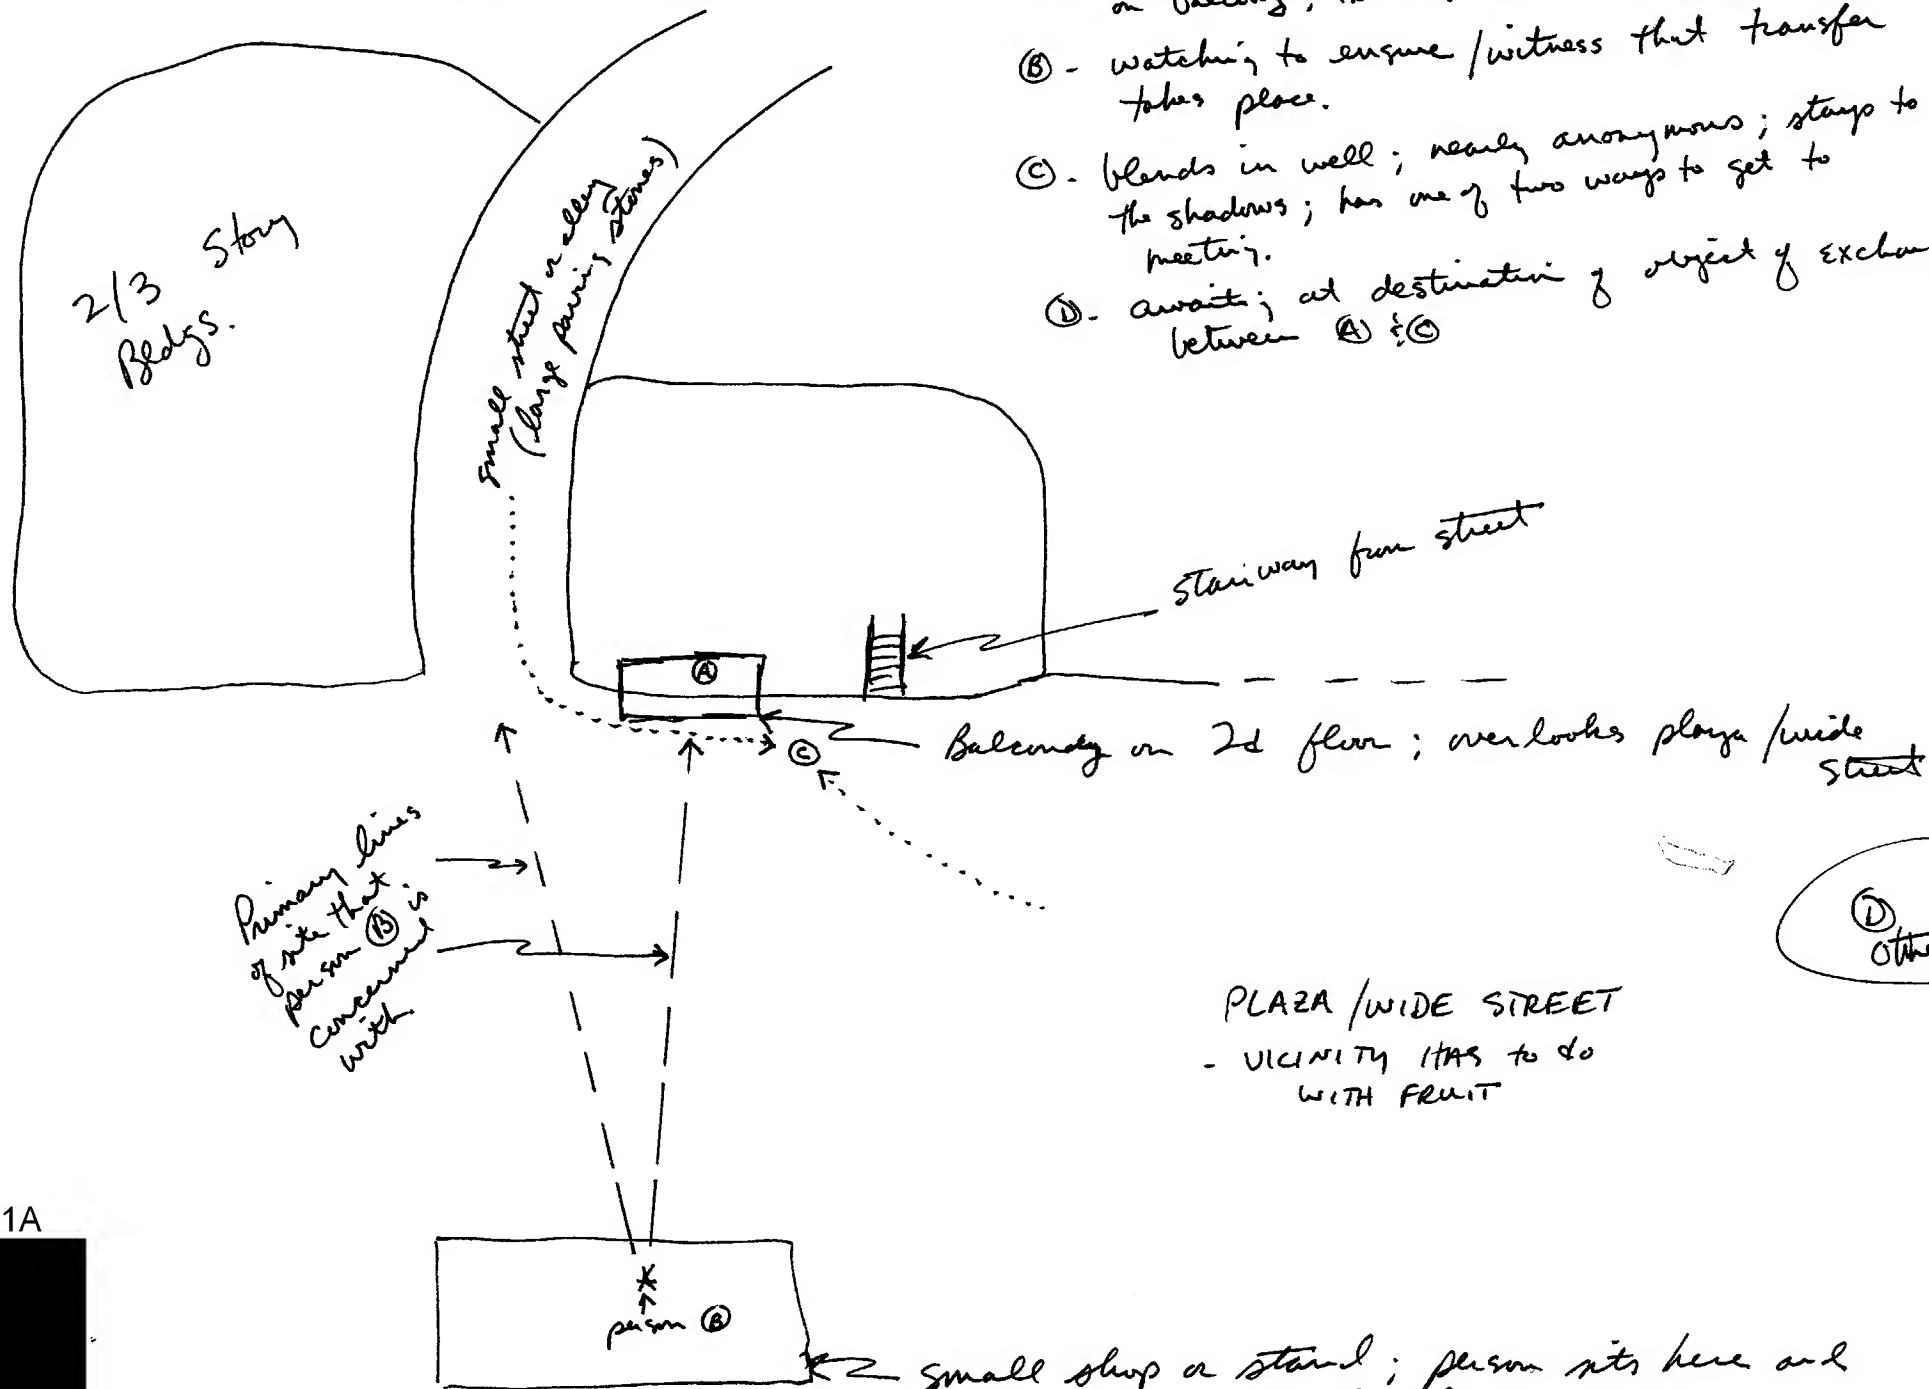 on balcony;
Ⓑ - watching to ensure / witness that transfer
takes place.
Ⓒ - blends in well; nearly anonymous; stays to
the shadows; has one of two ways to get to
meeting.
Ⓓ - awaits; at destination of object of exchan
between Ⓐ & Ⓒ
2/3 Story
Bldgs.
small street or alley
(large paving stones)
stairway from street
Ⓐ
Ⓒ
Balcondy on 2d floor; overlooks plaza / wide
street
Primary lines
of site that
person Ⓑ is
concerned
with
Ⓓ
othe
PLAZA / WIDE STREET
- VICINITY HAS to do
WITH FRUIT
1A
person Ⓑ
small shop or stand; person sits here and